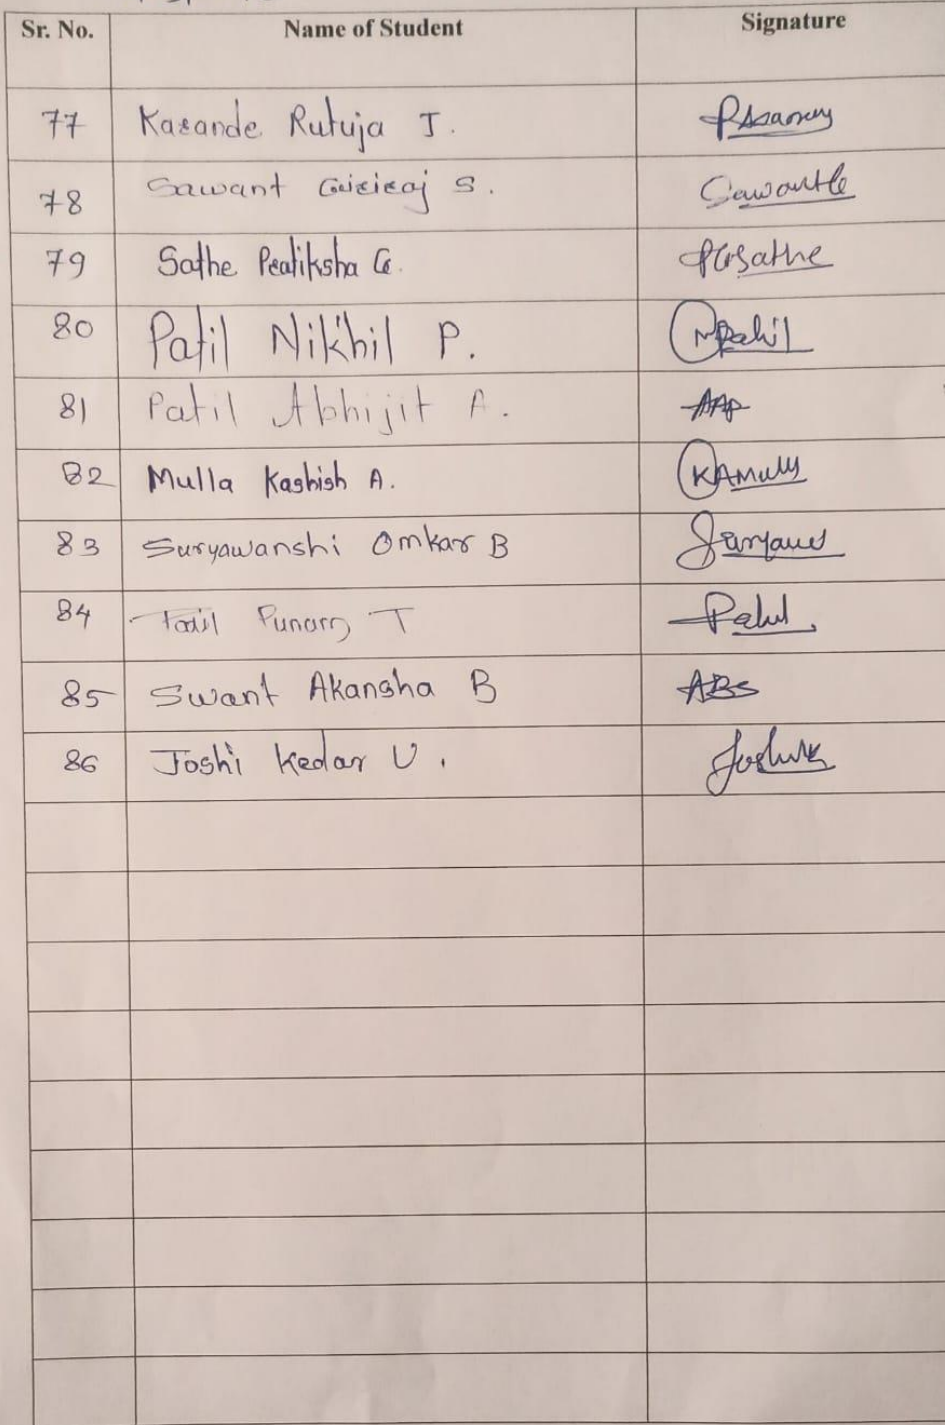 Sr. No. Name of Student Signature
77 Karande Rutuja J.
78 Sawant Giriraj S. Sawant
79 Sathe Pratiksha G. PGSathe
80 Patil Nikhil P. NPPatil
81 Patil Abhijit A. AAP
82 Mulla Kashish A. KAMulla
83 Suryawanshi Omkar B
84 Punam T
85 Swant Akansha B ABS
86 Joshi Kedar U.